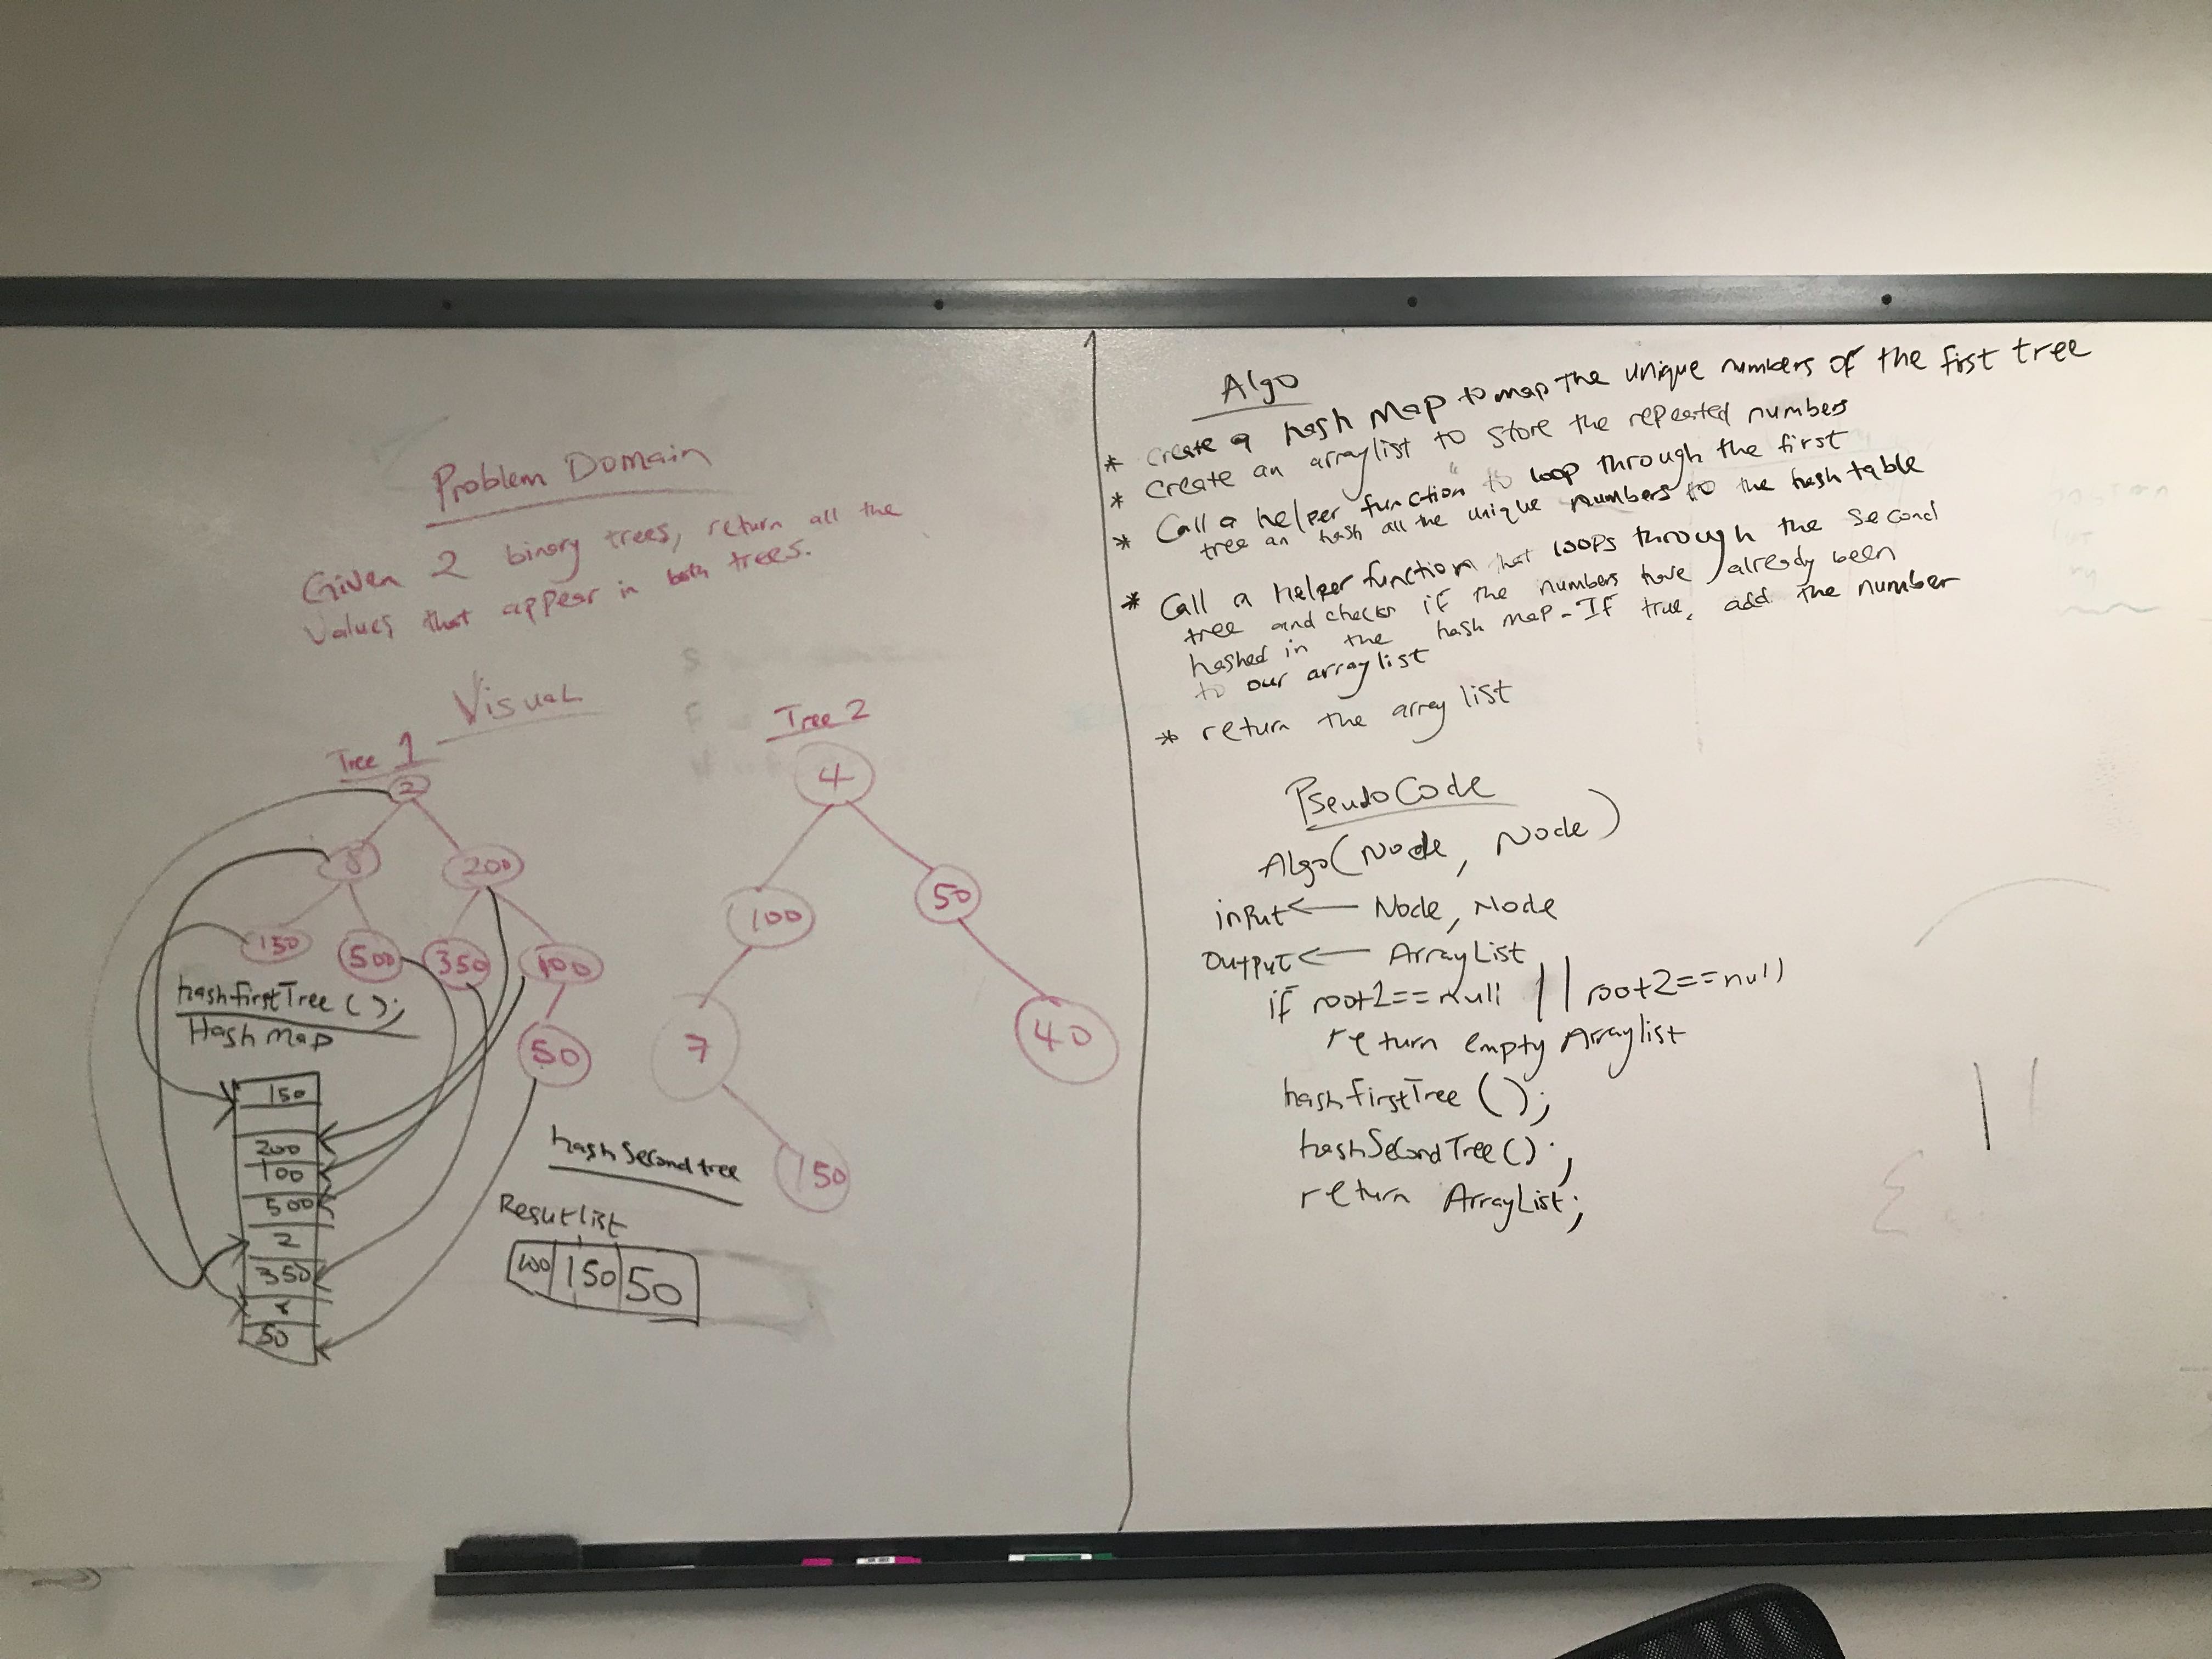 Problem Domain
Given 2 binary trees, return all the
values that appear in both trees.
Visual
Tree 1
2
8
200
150
500
350
100
50
Tree 2
4
100
50
7
40
150
hashfirstTree ( );
Hash map
150
200
100
500
2
350
8
50
hashSecondtree
Resultlist
100 150 50
Algo
* create a hash map to map the unique numbers of the first tree
* create an arraylist to store the repeated numbers
* Call a helper function to loop through the first
tree an hash all the unique numbers to the hash table
* Call a helper function that loops through the second
tree and checks if the numbers have already been
hashed in the hash map - If true, add the number
to our array list
* return the array list
PseudoCode
Algo(Node, Node)
input ← Node, Node
Output ← ArrayList
if root1==null || root2==null
return empty Arraylist
hashfirstTree ( );
hashSecondTree ( );
return ArrayList;